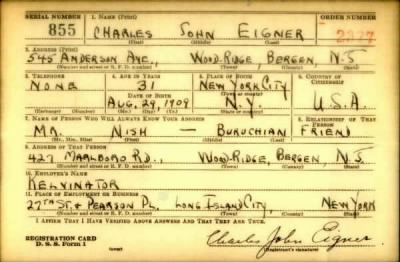 SERIAL NUMBER 1. NAME (Print) ORDER NUMBER
855 CHARLES JOHN EIGNER 2377
(First) (Middle) (Last)
2. ADDRESS (Print)
545 ANDERSON AVE., WOOD-RIDGE, BERGEN, N.J.
(Number and street or R. F. D. number) (Town) (County) (State)
3. TELEPHONE 4. AGE IN YEARS 5. PLACE OF BIRTH 6. COUNTRY OF CITIZENSHIP
NONE 31 NEW YORK CITY
DATE OF BIRTH (Town or county)
AUG. 29, 1909 N.Y. U.S.A.
(Exchange) (Number) (Mo.) (Day) (Yr.) (State or country)
7. NAME OF PERSON WHO WILL ALWAYS KNOW YOUR ADDRESS 8. RELATIONSHIP OF THAT PERSON
MR. NISH — BURUCHIAN FRIEND
(Mr., Mrs., Miss) (First) (Middle) (Last)
9. ADDRESS OF THAT PERSON
427 MARLBORO RD., WOOD-RIDGE, BERGEN, N.J.
(Number and street or R. F. D. number) (Town) (County) (State)
10. EMPLOYER'S NAME
KELVINATOR
11. PLACE OF EMPLOYMENT OR BUSINESS
27TH ST. & PEARSON PL. LONG ISLAND CITY, NEW YORK
(Number and street or R. F. D. number) (Town) (County) (State)
I AFFIRM THAT I HAVE VERIFIED ABOVE ANSWERS AND THAT THEY ARE TRUE.
REGISTRATION CARD
D. S. S. Form 1 (over) Charles John Eigner
(Registrant's signature)